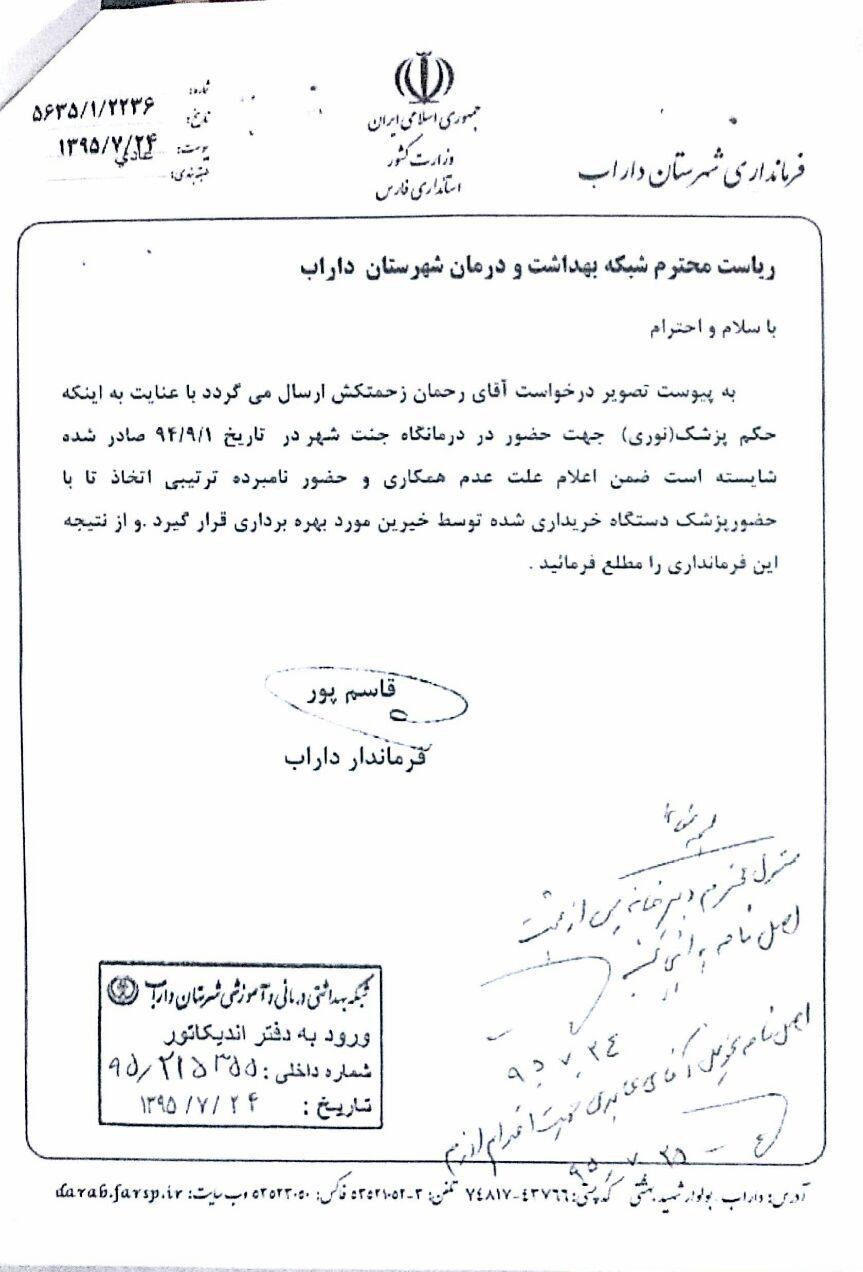 جمهوری اسلامی ایران
وزارت کشور
استانداری فارس
فرمانداری شهرستان داراب
شماره: ۵۶۳۵/۱/۲۲۳۶
تاریخ: ۱۳۹۵/۷/۲۴
پیوست:
طبقه‌بندی: عادي
ریاست محترم شبکه بهداشت و درمان شهرستان داراب
با سلام و احترام
به پیوست تصویر درخواست آقای رحمان زحمتکش ارسال می گردد با عنایت به اینکه
حکم پزشک(نوری) جهت حضور در درمانگاه جنت شهر در تاریخ ۹۴/۹/۱ صادر شده
شایسته است ضمن اعلام علت عدم همکاری و حضور نامبرده ترتیبی اتخاذ تا با
حضورپزشک دستگاه خریداری شده توسط خیرین مورد بهره برداری قرار گیرد .و از نتیجه
این فرمانداری را مطلع فرمائید .
قاسم پور
فرماندار داراب
مسئول محترم دبیرخانه پس از ثبت
اصل نامه به
۹۵.۷.۲۴
اصل نامه تحویل آقای عابدی جهت اقدام لازم
۹۵.۷.۲۵
شبکه بهداشتی درمانی و آموزشی شهرستان داراب
ورود به دفتر اندیکاتور
شماره داخلی: ۹۵/۲۱۵۳۵۵
تاریخ: ۱۳۹۵/۷/۲۴
آدرس: داراب ـ بولوار شهید بهشتی کدپستی: ۷۴۸۱۷-۴۳۷۶۶ تلفن: ۳-۵۳۵۲۱۰۵۲ فاکس: ۵۳۵۲۳۰۵۰ وب سایت: darab.farsp.ir